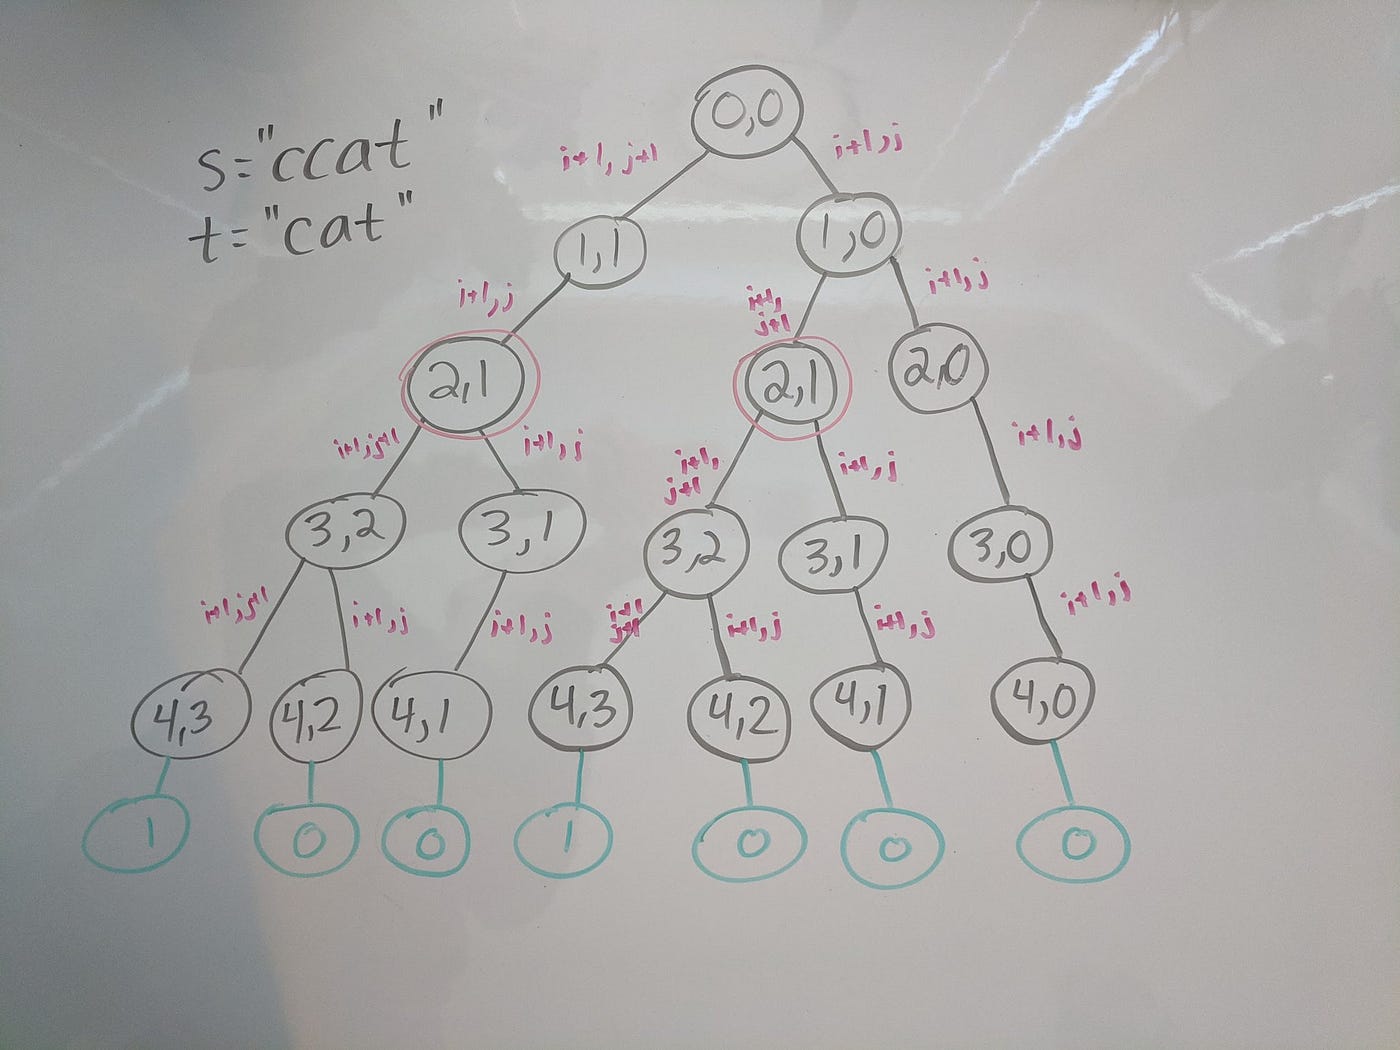 s="ccat"
t="cat"
0,0
i+1, j+1
i+1,j
1,1
1,0
i+1,j
i+1,
j+1
i+1,j
2,1
2,1
2,0
i+1,j+1
i+1,j
i+1,
j+1
i+1,j
i+1,j
3,2
3,1
3,2
3,1
3,0
i+1,j+1
i+1,j
i+1,j
i+1
j+1
i+1,j
i+1,j
i+1,j
4,3
4,2
4,1
4,3
4,2
4,1
4,0
1
0
0
1
0
0
0